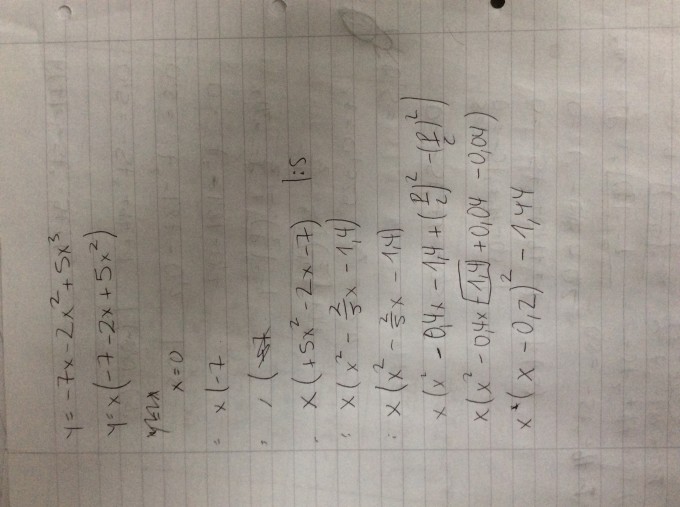 y = -7x - 2x² + 5x³
y = x(-7 - 2x + 5x²)
x = 0
= x(-7
x(+5x² - 2x - 7) |:5
x(x² - 2/5 x - 1,4)
x(x² - 2/5 x - 1,4)
x(x² - 0,4x - 1,4 + (p/2)² - (p/2)²)
x(x² - 0,4x - 1,4 + 0,04 - 0,04)
x*(x - 0,2)² - 1,44